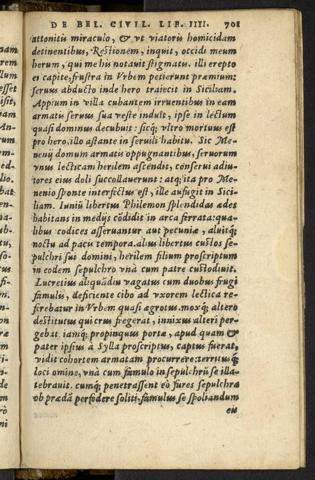 DE BEL. CIVIL. LIB. IIII. 701
attonitis miraculo, & vt viatoris homicidam
detinentibus, Restionem, inquit, occidi meum
herum, qui me his notauit stigmatis. illi erepto
ei capite, frustra in Vrbem petierunt præmium:
seruus abducto inde hero traiecit in Siciliam.
Appium in villa cubantem irruentibus in eam
armatis seruus sua veste indult, ipse in lectum
quasi dominus decubuit: sicq; vltro mortuus est
pro hero, illo astante in seruili habitu. Sic Me-
nenij domum armatis oppugnantibus, seruorum
vnus lecticam herilem ascendit, conserui adiu-
tores eius doli succollauerunt: atq; ita pro Me-
nenio sponte interfectus est, ille aufugit in Sici-
liam. Iuniũ libertus Philemon splendidas ædes
habitans in medijs cõdidit in arca ferrata: qua-
libus codices asseruantur aut pecuniæ, aluitq;
noctu ad pacis tempora. alius libertus custos se-
pulchri sui domini, herilem filium proscriptum
in eodem sepulchro vnà cum patre custodiuit.
Lucretius aliquãdiu vagatus cum duobus frugi
famulis, deficiente cibo ad vxorem lectica re-
ferebatur in Vrbem quasi ægrotus. moxq; altero
destitutus qui crus fregerat, innixus alteri per-
gebat. iamq; propinquus portæ, apud quam &
pater ipsius à Sylla proscriptus, captus fuerat,
vidit cohortem armatam procurrere: territusq;
loci omine, vnà cum famulo in sepulchrũ se illa-
tebrauit. cumq; penetrassent eò fures sepulchra
ob prædã perfodere soliti, famulus se spoliandum
eis